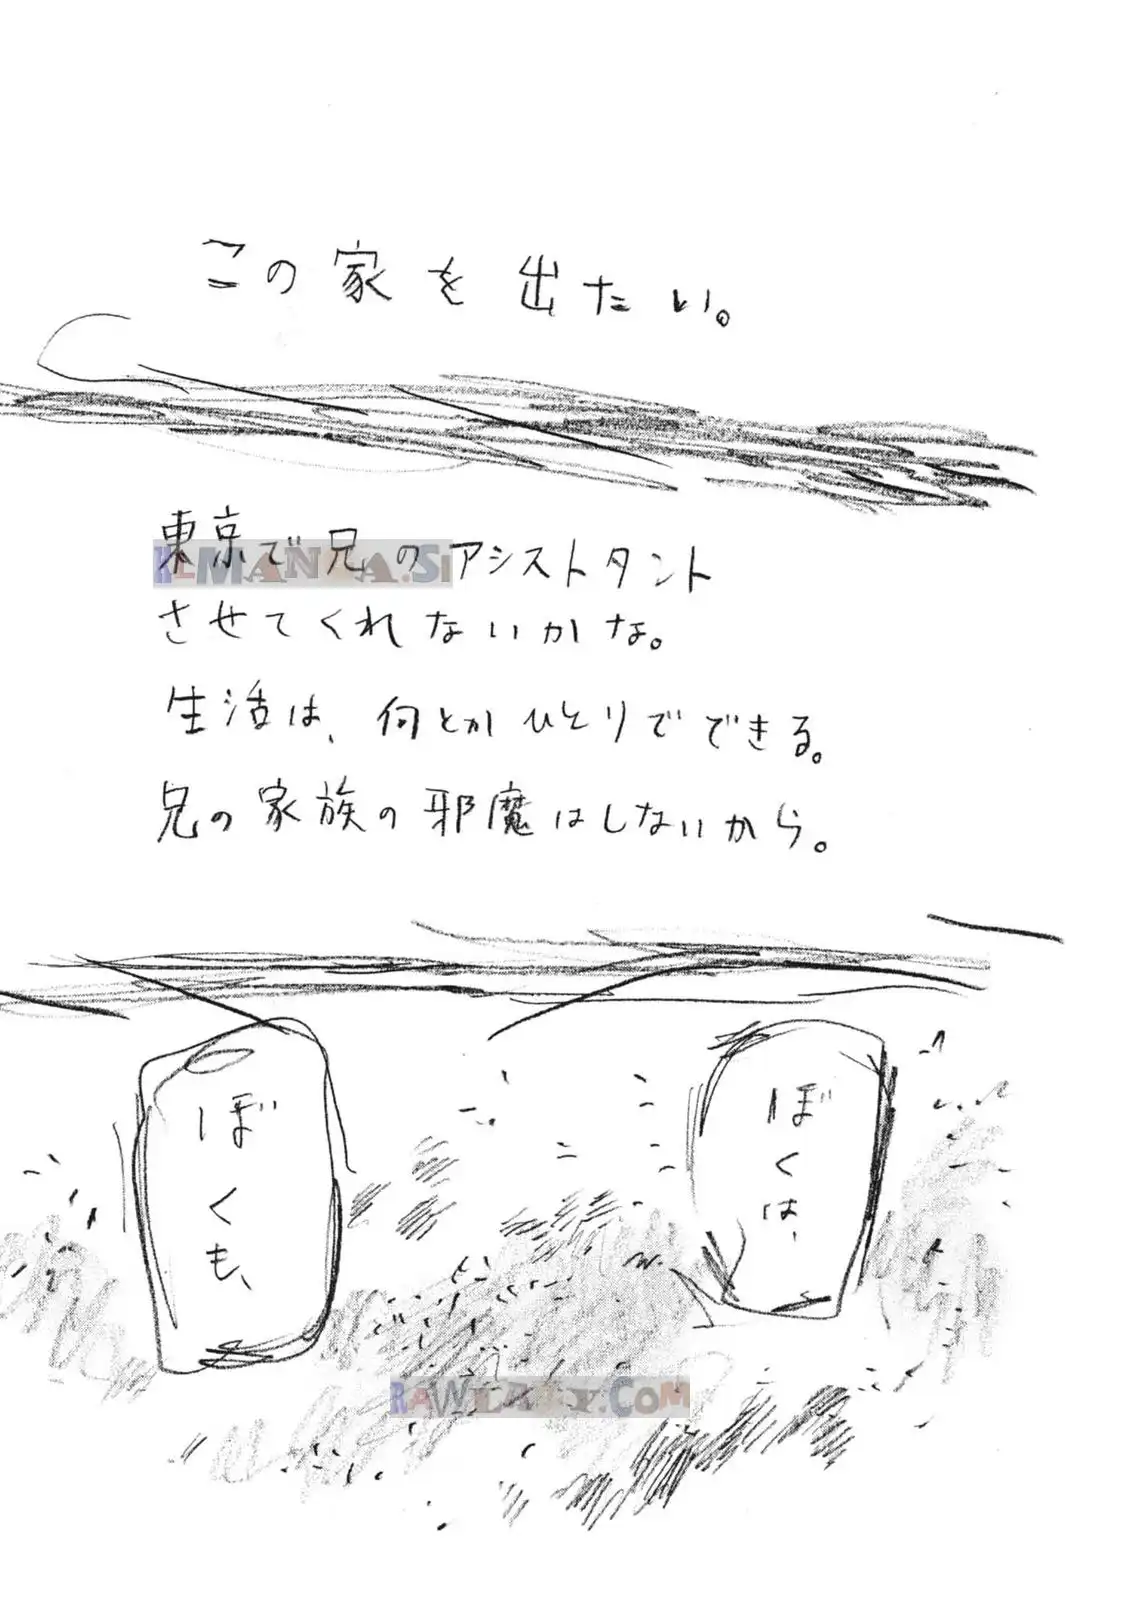 この家を出たい。
東京で兄のアシストタント
させてくれないかな。
生活は、何とかひとりでできる。
兄の家族の邪魔はしないから。
ぼくは、
ぼくも、
KLMANGA.SI
RAWLAZY.COM